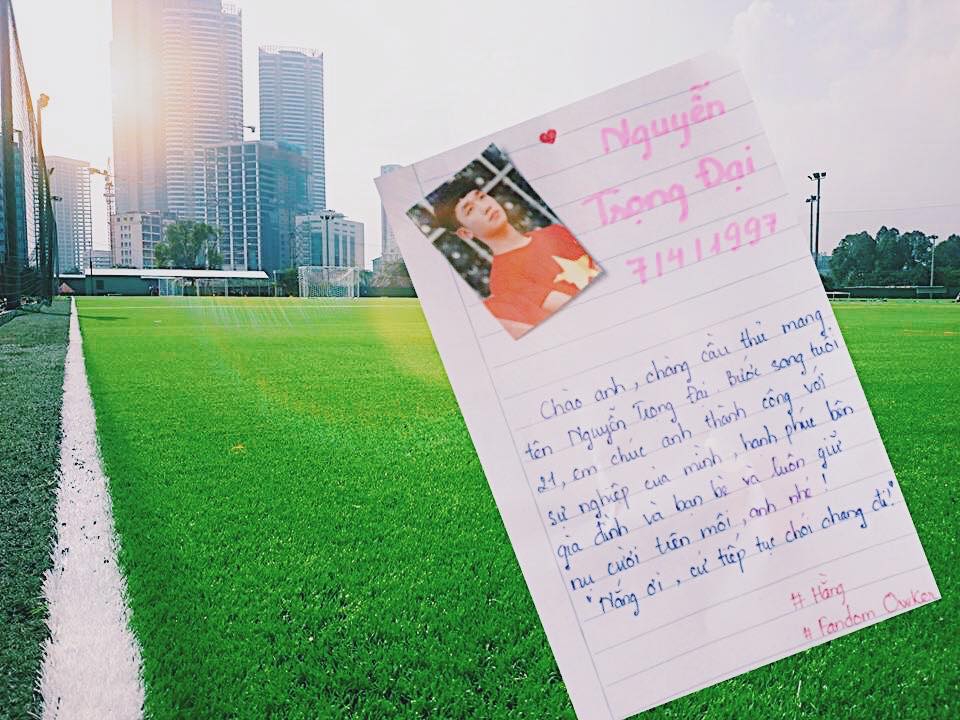 Nguyễn
Trọng Đại
7/4/1997
Chào anh, chàng cầu thủ mang
tên Nguyễn Trọng Đại. Bước sang tuổi
21, em chúc anh thành công với
sự nghiệp của mình, hạnh phúc bên
gia đình và bạn bè và luôn giữ
nụ cười trên môi, anh nhé!
"Nắng ơi, cứ tiếp tục chói chang đi!"
# Hằng
# Fandom Owker